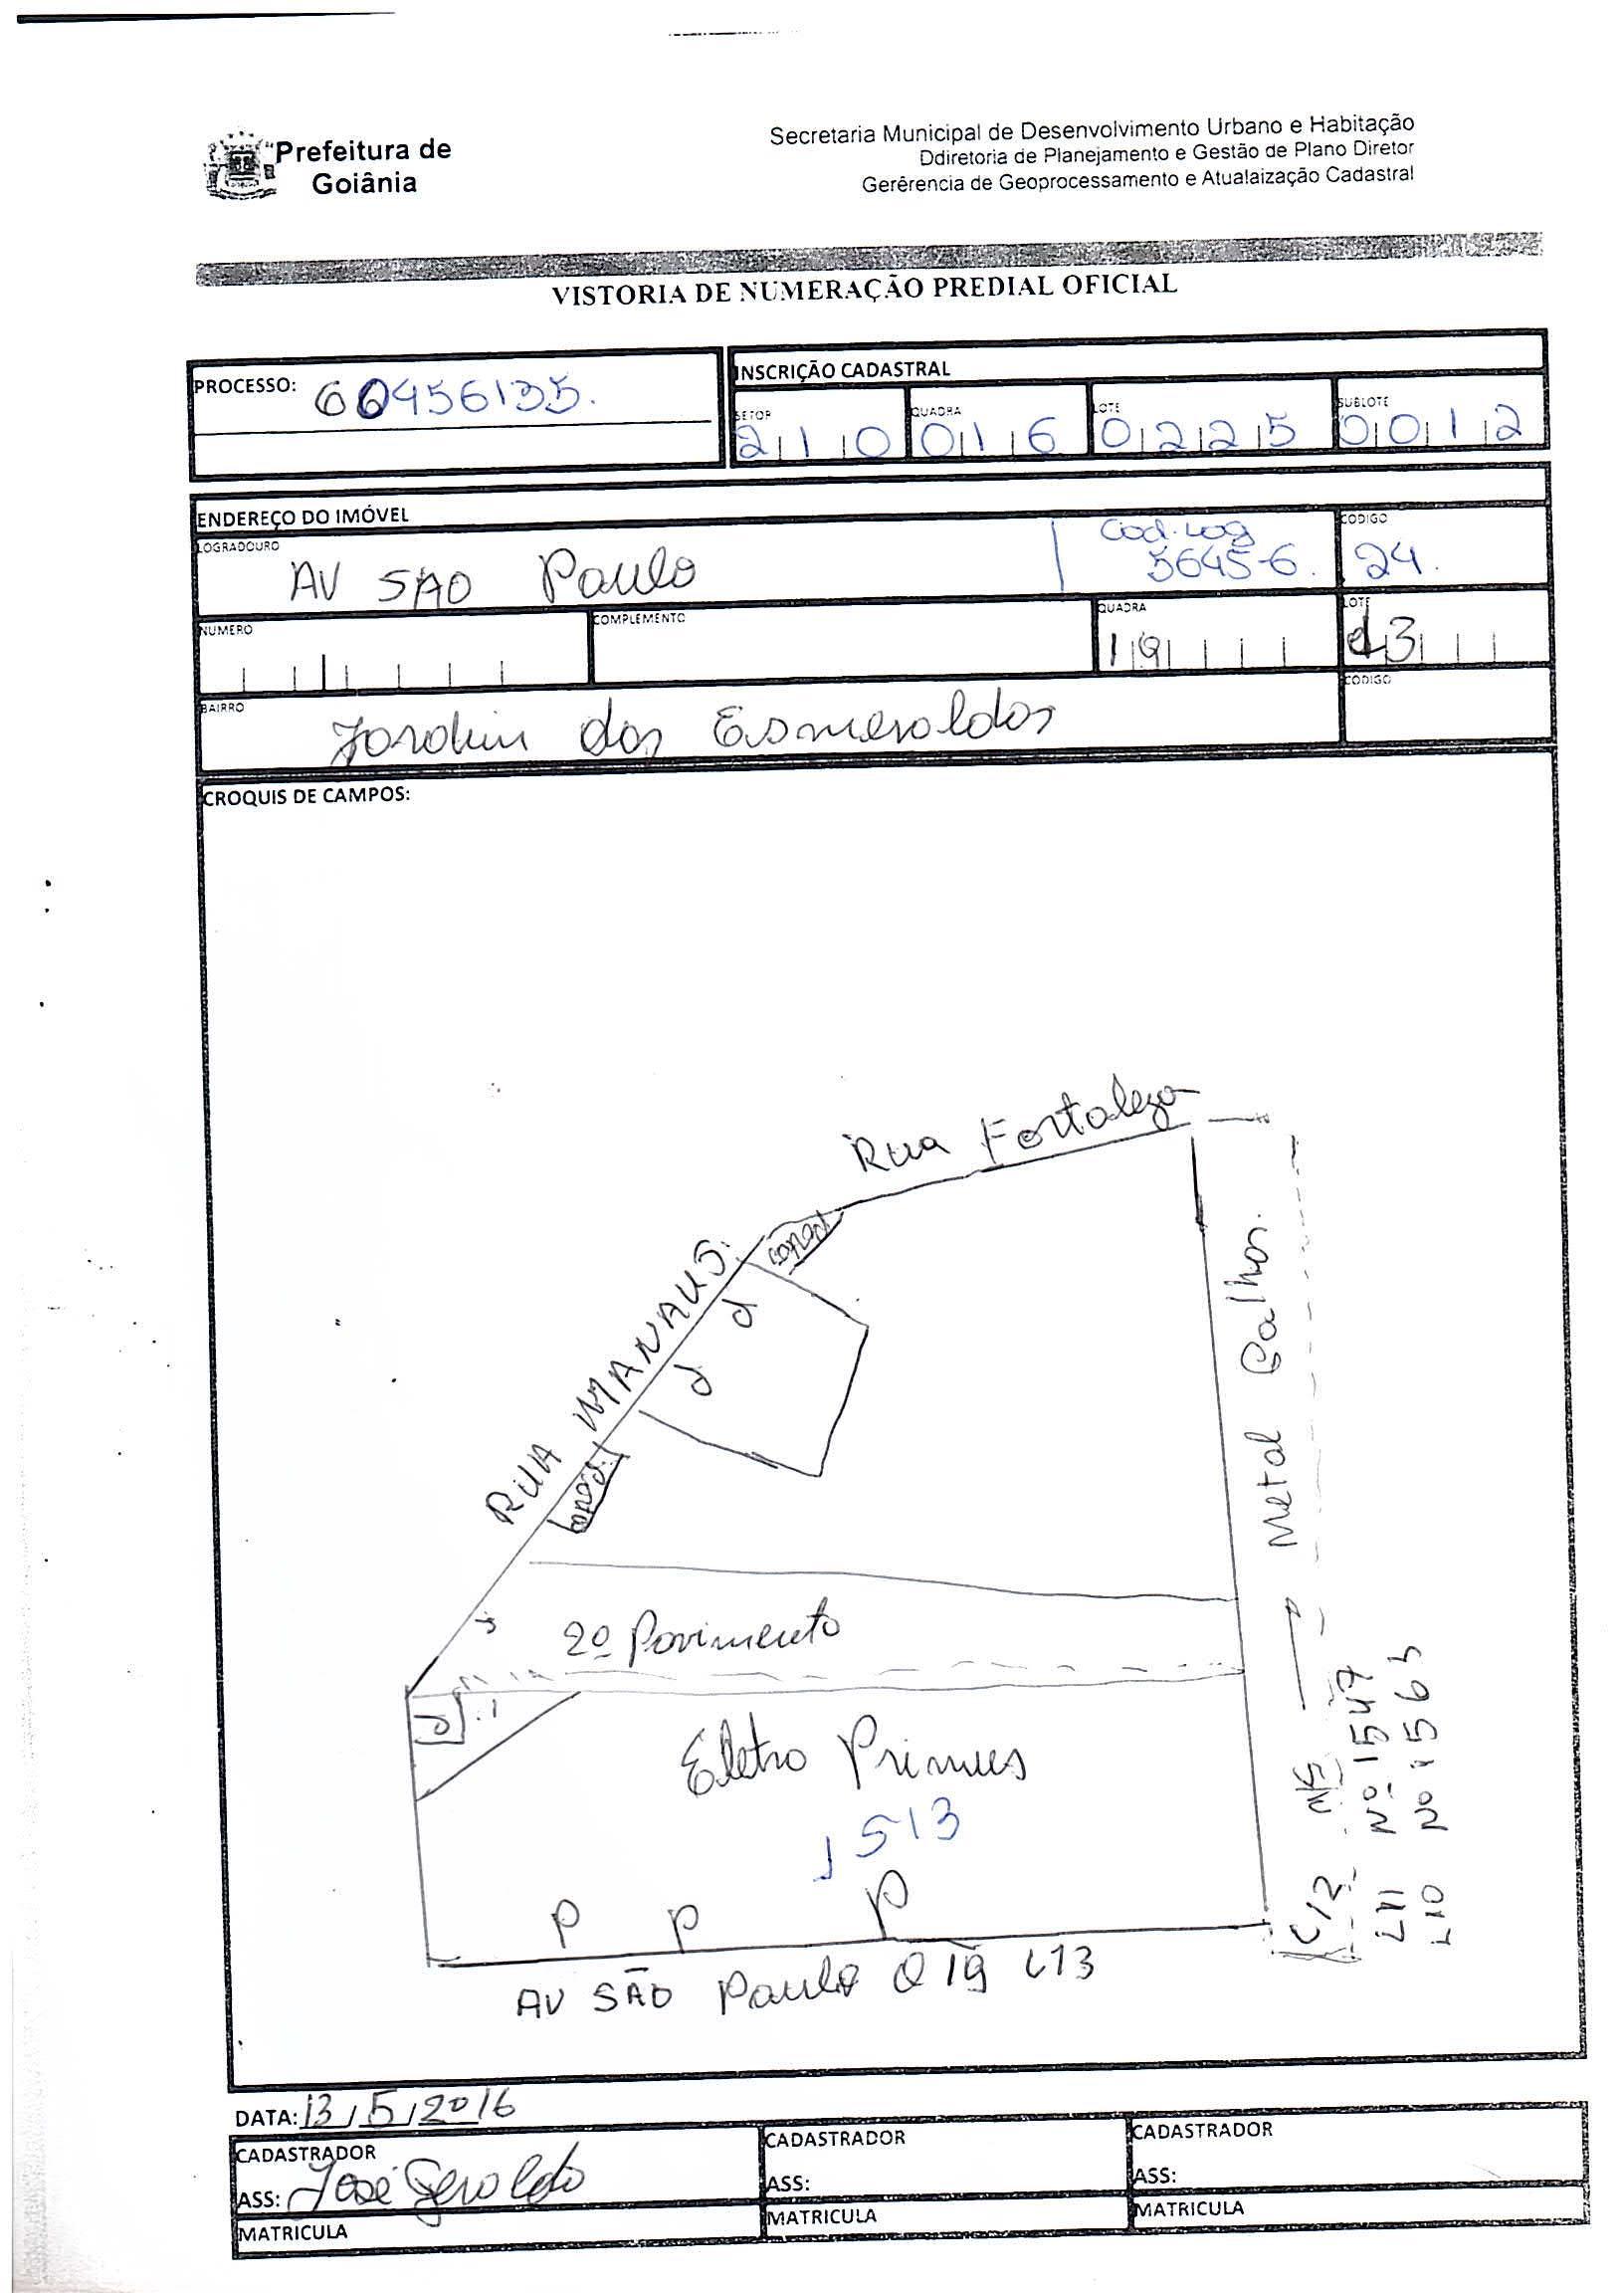 Prefeitura de
Goiânia
Secretaria Municipal de Desenvolvimento Urbano e Habitação
Ddiretoria de Planejamento e Gestão de Plano Diretor
Gerêrencia de Geoprocessamento e Atualaização Cadastral
VISTORIA DE NUMERAÇÃO PREDIAL OFICIAL
PROCESSO: 66456135.
INSCRIÇÃO CADASTRAL
SETOR QUADRA LOTE SUBLOTE
210 016 0225 0012
ENDEREÇO DO IMÓVEL
LOGRADOURO CODIGO
AV SAO Paulo Cod. Log 5645-6. 24.
NUMERO COMPLEMENTO QUADRA LOTE
19 13
BAIRRO CODIGO
Jardim das Esmeraldas
CROQUIS DE CAMPOS:
Rua Fortaleza
RUA MANAUS.
Metal Calhas.
2º Pavimento
Eletro Primus
1513
P P P
AV SÃO Paulo Q 19 L13
L12
L11 Nº 1547
L10 Nº 1563
DATA: 13/5/2016
CADASTRADOR CADASTRADOR CADASTRADOR
ASS: José Geraldo ASS: ASS:
MATRICULA MATRICULA MATRICULA